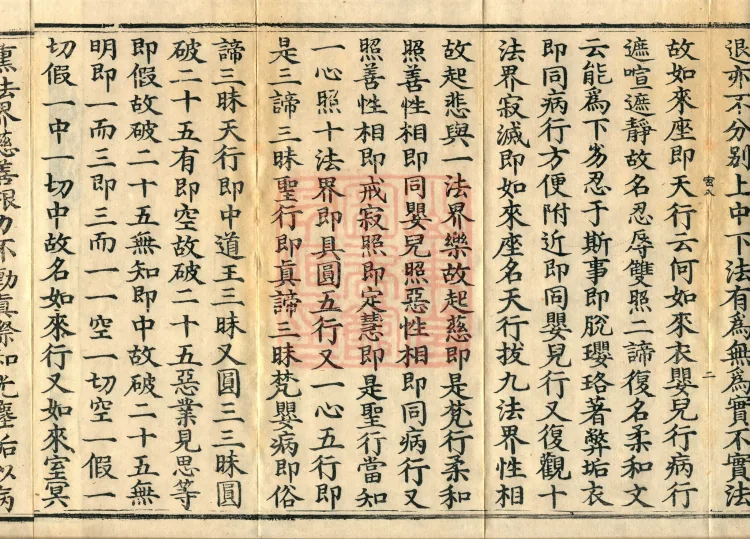 退亦不分别上中下法有爲無爲實不實法
宻八
二
故如來座即天行云何如來衣嬰兒行病行
遮喧遮靜故名忍辱雙照二諦復名柔和文
云能爲下劣忍于斯事即脫瓔珞著弊垢衣
即同病行方便附近即同嬰兒行又復觀十
法界寂滅即如來座名天行拔九法界性相
故起悲與一法界樂故起慈即是梵行柔和
照善性相即同嬰兒照惡性相即同病行又
照善性相即戒寂照即定慧即是聖行當知
一心照十法界即具圓五行又一心五行即
是三諦三昧聖行即眞諦三昧梵嬰病即俗
諦三昧天行即中道王三昧又圓三三昧圓
破二十五有即空故破二十五惡業見思等
即假故破二十五無知即中故破二十五無
明即一而三即三而一一空一切空一假一
切假一中一切中故名如來行又如來室冥
熏法界慈善根力不動眞際和光塵垢以病